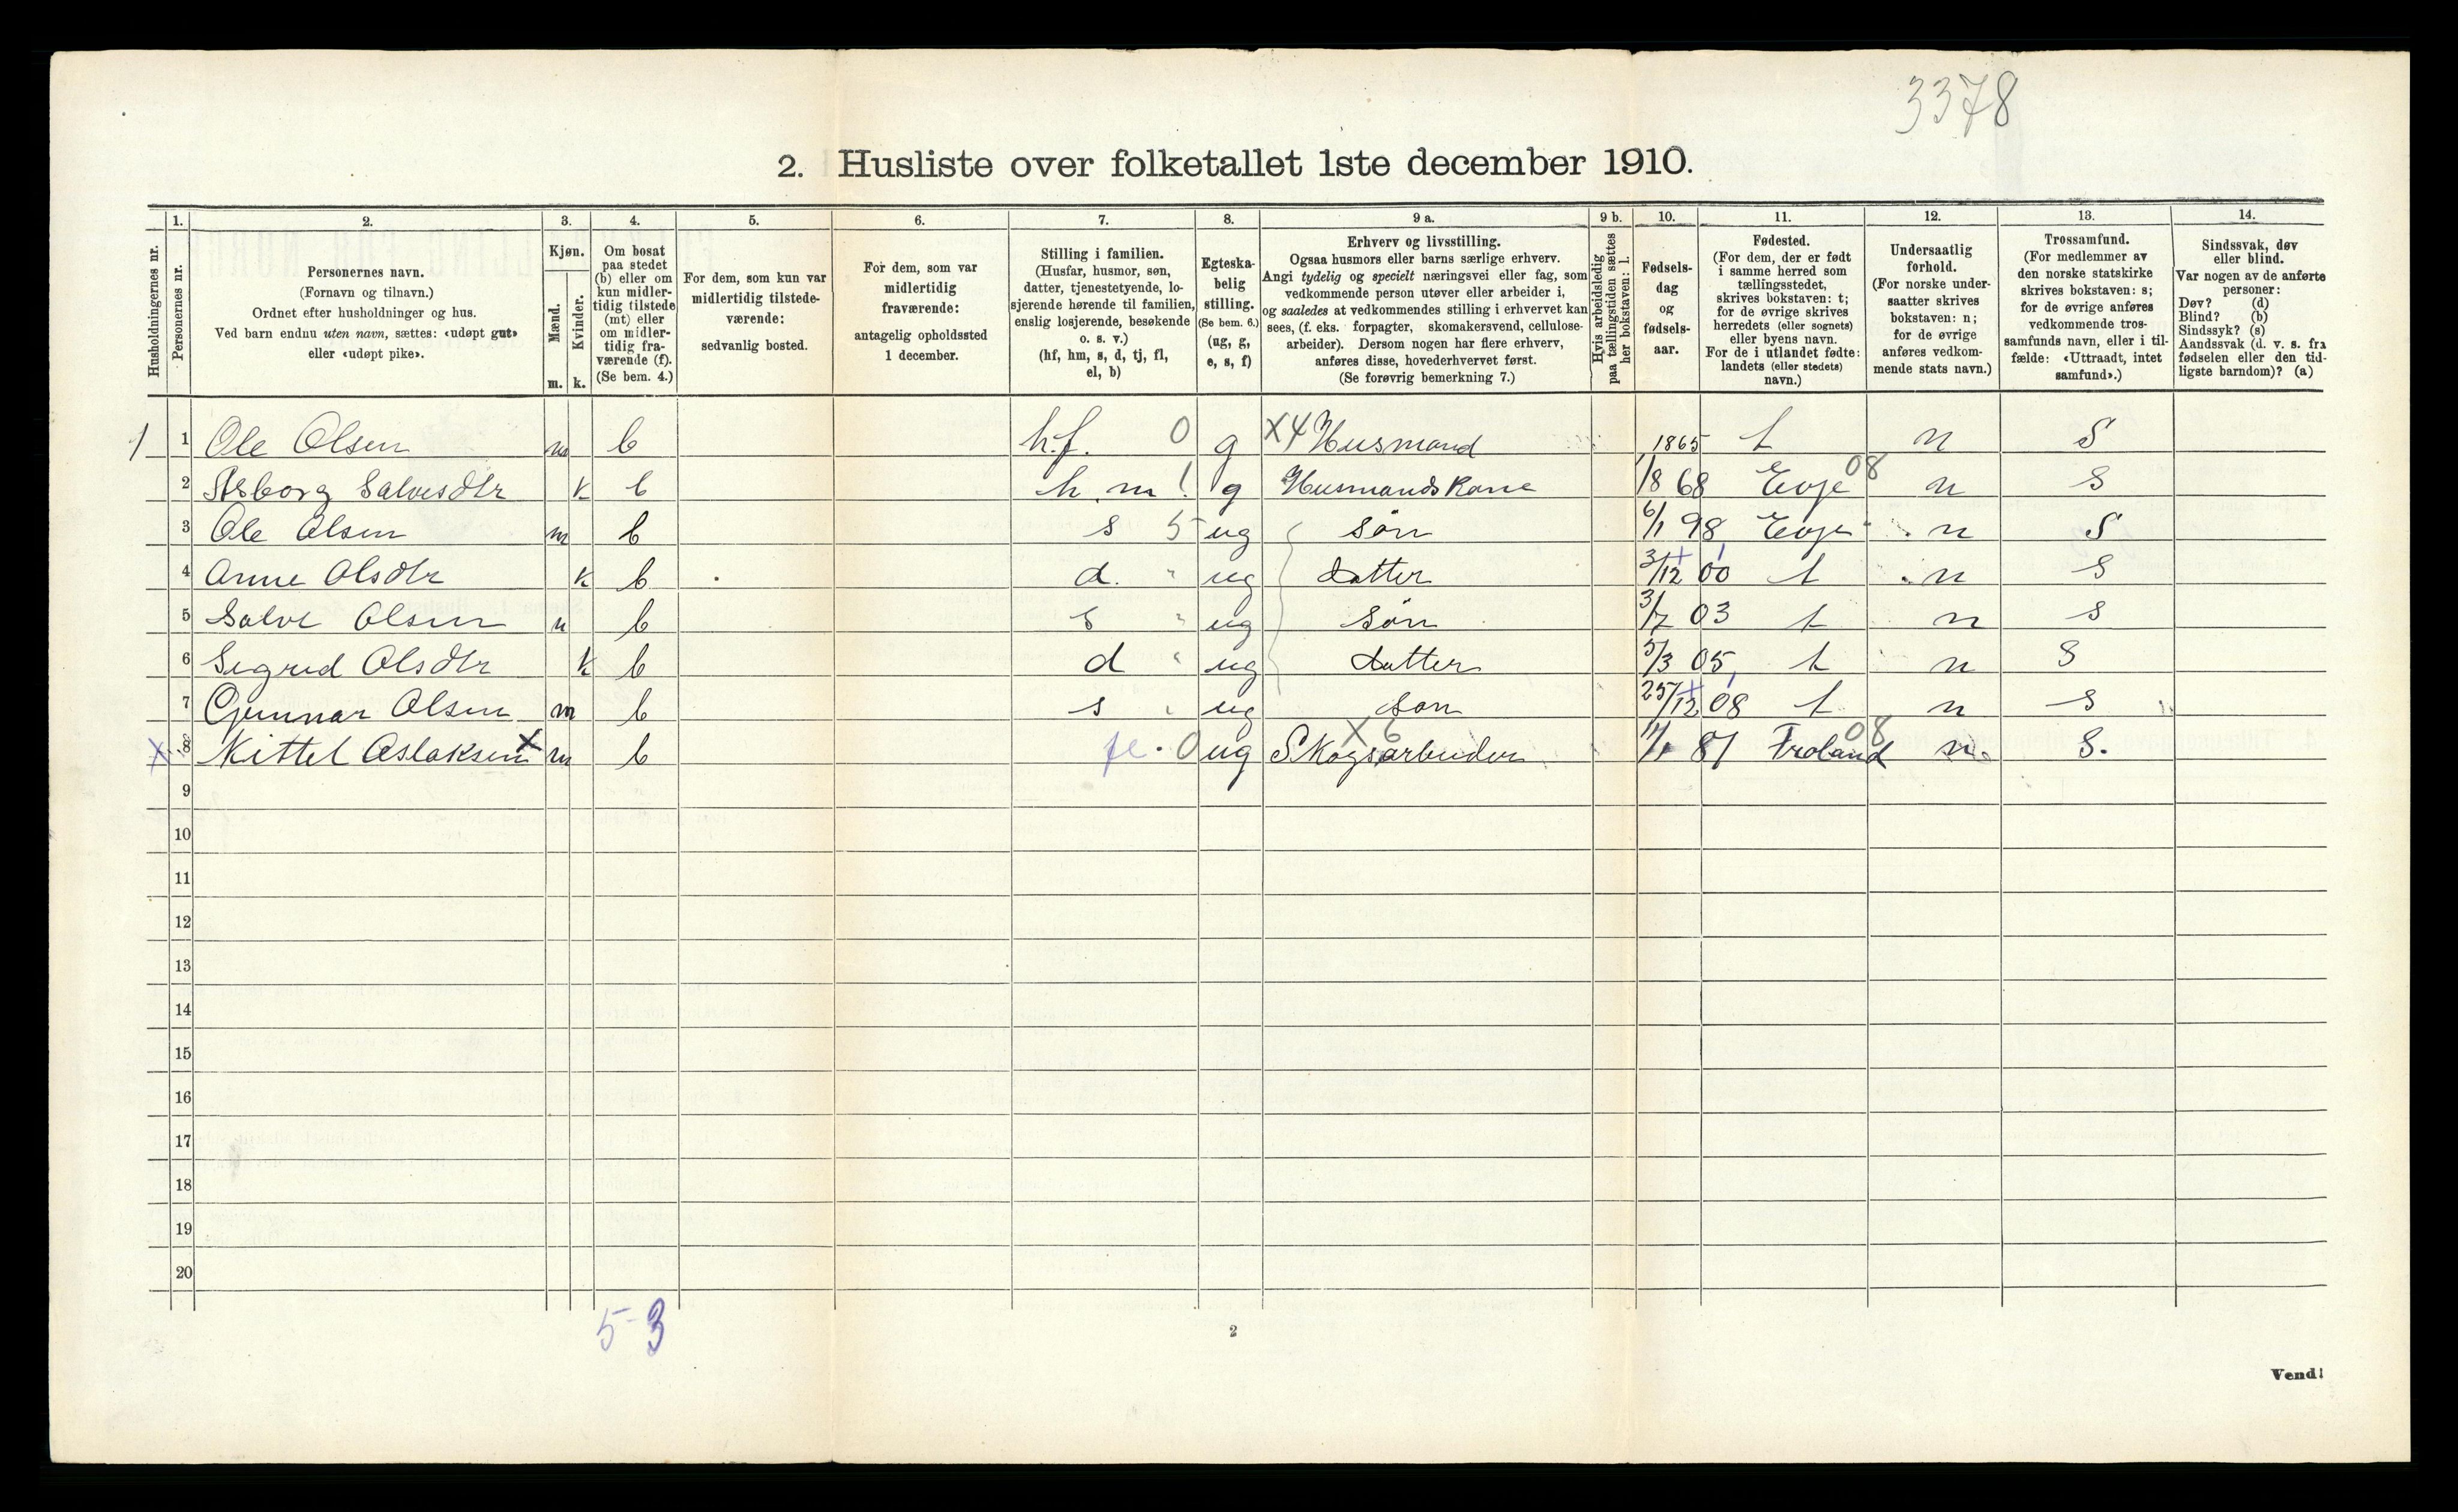 3378
2. Husliste over folketallet 1ste december 1910.
Husholdningernes nr.
1.
Personernes nr.
2.
Personernes navn.
(Fornavn og tilnavn.)
Ordnet efter husholdninger og hus.
Ved barn endnu uten navn, sættes: «udøpt gut»
eller «udøpt pike».
3.
Kjøn.
Mænd.
m.
Kvinder.
k.
4.
Om bosat
paa stedet
(b) eller om
kun midler-
tidig tilstede
(mt) eller
om midler-
tidig fra-
værende (f).
(Se bem. 4.)
5.
For dem, som kun var
midlertidig tilstede-
værende:
sedvanlig bosted.
6.
For dem, som var
midlertidig
fraværende:
antagelig opholdssted
1 december.
7.
Stilling i familien.
(Husfar, husmor, søn,
datter, tjenestetyende, lo-
sjerende hørende til familien,
enslig losjerende, besøkende
o. s. v.)
(hf, hm, s, d, tj, fl,
el, b)
8.
Egteska-
belig
stilling.
(Se bem. 6.)
(ug, g,
e, s, f)
9 a.
Erhverv og livsstilling.
Ogsaa husmors eller barns særlige erhverv.
Angi tydelig og specielt næringsvei eller fag, som
vedkommende person utøver eller arbeider i,
og saaledes at vedkommendes stilling i erhvervet kan
sees, (f. eks. forpagter, skomakersvend, cellulose-
arbeider). Dersom nogen har flere erhverv,
anføres disse, hovederhvervet først.
(Se forøvrig bemerkning 7.)
9 b.
Hvis arbeidsledig
paa tællingstiden sættes
her bokstaven: l.
10.
Fødsels-
dag
og
fødsels-
aar.
11.
Fødested.
(For dem, der er født
i samme herred som
tællingsstedet,
skrives bokstaven: t;
for de øvrige skrives
herredets (eller sognets)
eller byens navn.
For de i utlandet fødte:
landets (eller stedets)
navn.)
12.
Undersaatlig
forhold.
(For norske under-
saatter skrives
bokstaven: n;
for de øvrige
anføres vedkom-
mende stats navn.)
13.
Trossamfund.
(For medlemmer av
den norske statskirke
skrives bokstaven: s;
for de øvrige anføres
vedkommende tros-
samfunds navn, eller i til-
fælde: «Uttraadt, intet
samfund».)
14.
Sindssvak, døv
eller blind.
Var nogen av de anførte
personer:
Døv? (d)
Blind? (b)
Sindssyk? (s)
Aandssvak (d. v. s. fra
fødselen eller den tid-
ligste barndom)? (a)
1 1 Ole Olsen m b h.f. 0 g X4 Husmand 1865 t n S
2 Asborg Salvesdtr k b h.m ! g Husmandskone 1/8 68 Evje 08 n S
3 Ole Olsen m b s 5 ug Søn 6/1 98 Evje n S
4 Anne Olsdtr k b d. " ug datter 3/12 00 t n S
5 Salve Olsen m b s " ug Søn 3/7 03 t n S
6 Sigrid Olsdtr k b d " ug datter 5/3 05 t n S
7 Gunnar Olsen m b s " ug søn 25/12 08 t n S
X 8 Kittel Aslaksen X m b fl 0 ug X6 Skogsarbeider 87 Froland 08 n S.
9
10
11
12
13
14
15
16
17
18
19
20
5-3
2
Vend!